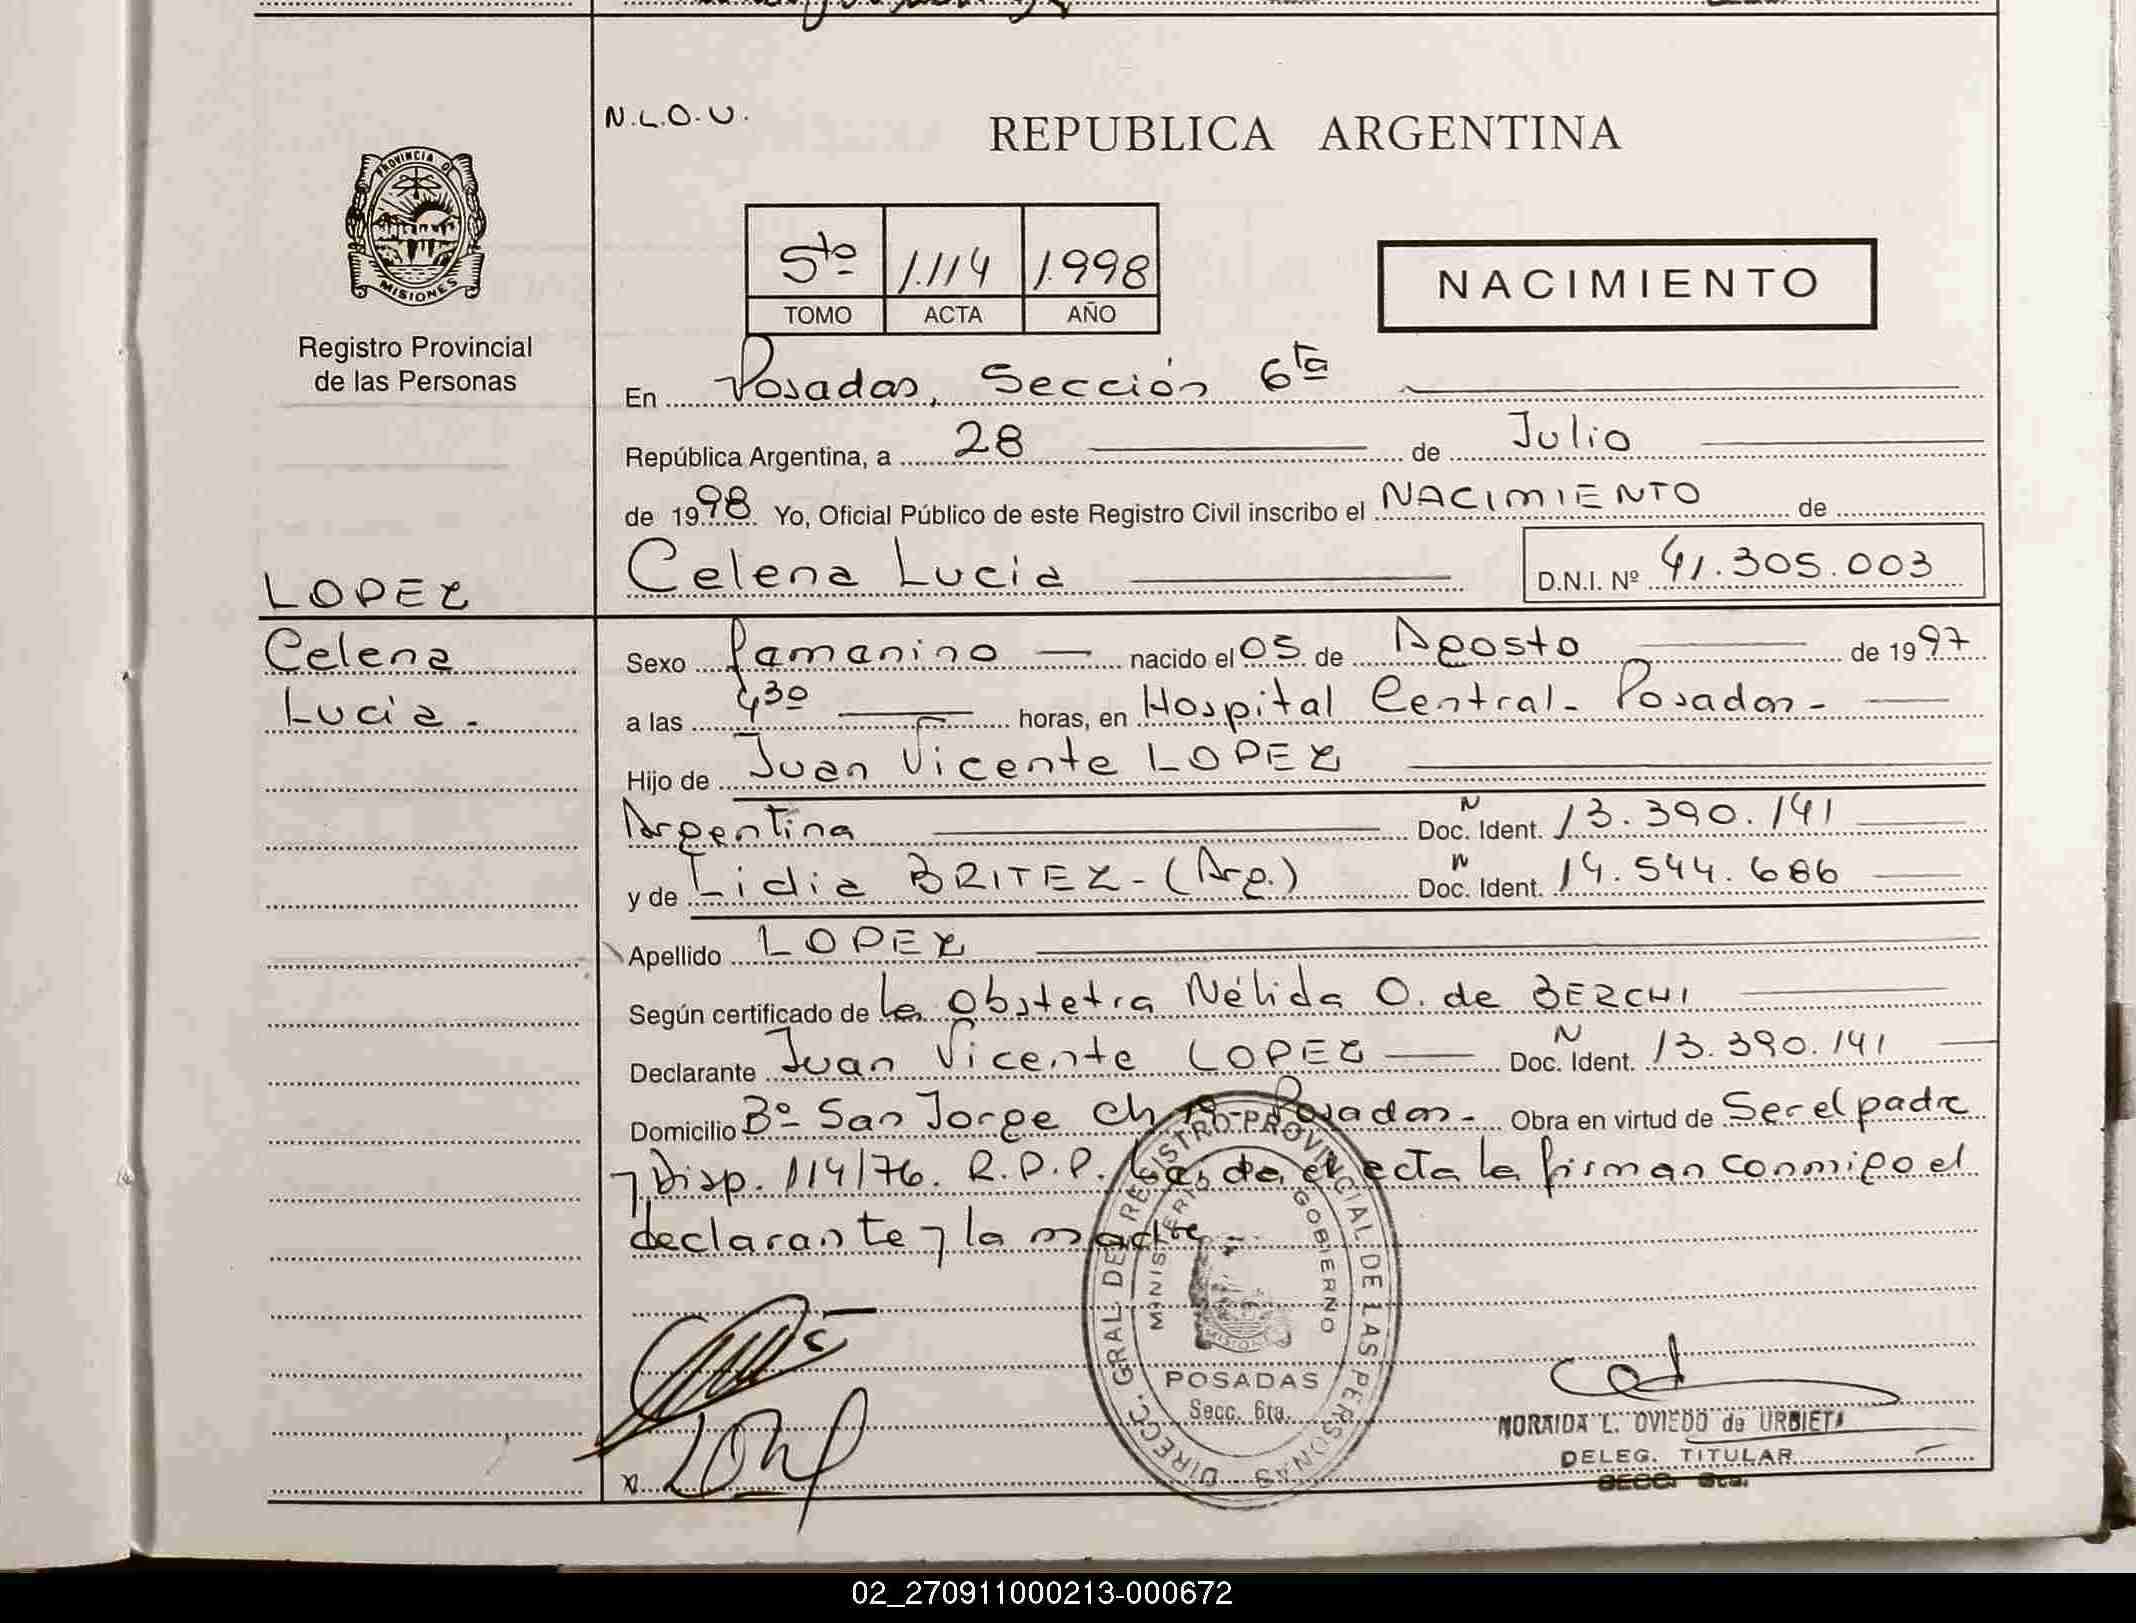 N.L.O.U.
REPUBLICA ARGENTINA
PROVINCIA DE
MISIONES
5to 1.114 1.998
TOMO ACTA AÑO
NACIMIENTO
Registro Provincial
de las Personas
En Posadas, Sección 6ta
República Argentina, a 28 de Julio
de 1998 Yo, Oficial Público de este Registro Civil inscribo el NACIMIENTO de
LOPEZ
Celena Lucia D.N.I. Nº 41.305.003
Celena
Lucia.-
Sexo femenino nacido el 05 de Agosto de 1997
a las 430 horas, en Hospital Central- Posadas-
Hijo de Juan Vicente LOPEZ
Argentina Doc. Ident. N 13.390.141
y de Lidia BRITEZ-(Arg.) Doc. Ident. N 14.544.686
Apellido LOPEZ
Según certificado de la obstetra Nélida O. de BERCHI
Declarante Juan Vicente LOPEZ Doc. Ident. N 13.390.141
Domicilio Bº San Jorge Ch Posadas- Obra en virtud de Ser el padre
y Disp. 114/76. R.P.P. el acta la firman conmigo el
declarante y la madre.-
DIRECC. GRAL DEL REGISTRO PROVINCIAL DE LAS PERSONAS
MINISTERIO GOBIERNO
MISIONES
POSADAS
Secc. 6ta.
NORAIDA L. OVIEDO de URBIETA
DELEG. TITULAR
SECC. 6ta.
02_270911000213-000672